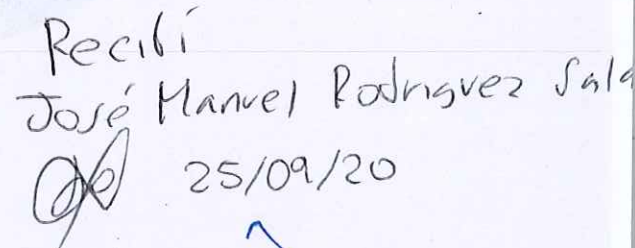 Recibí
José Manuel Rodriguez
25/09/20